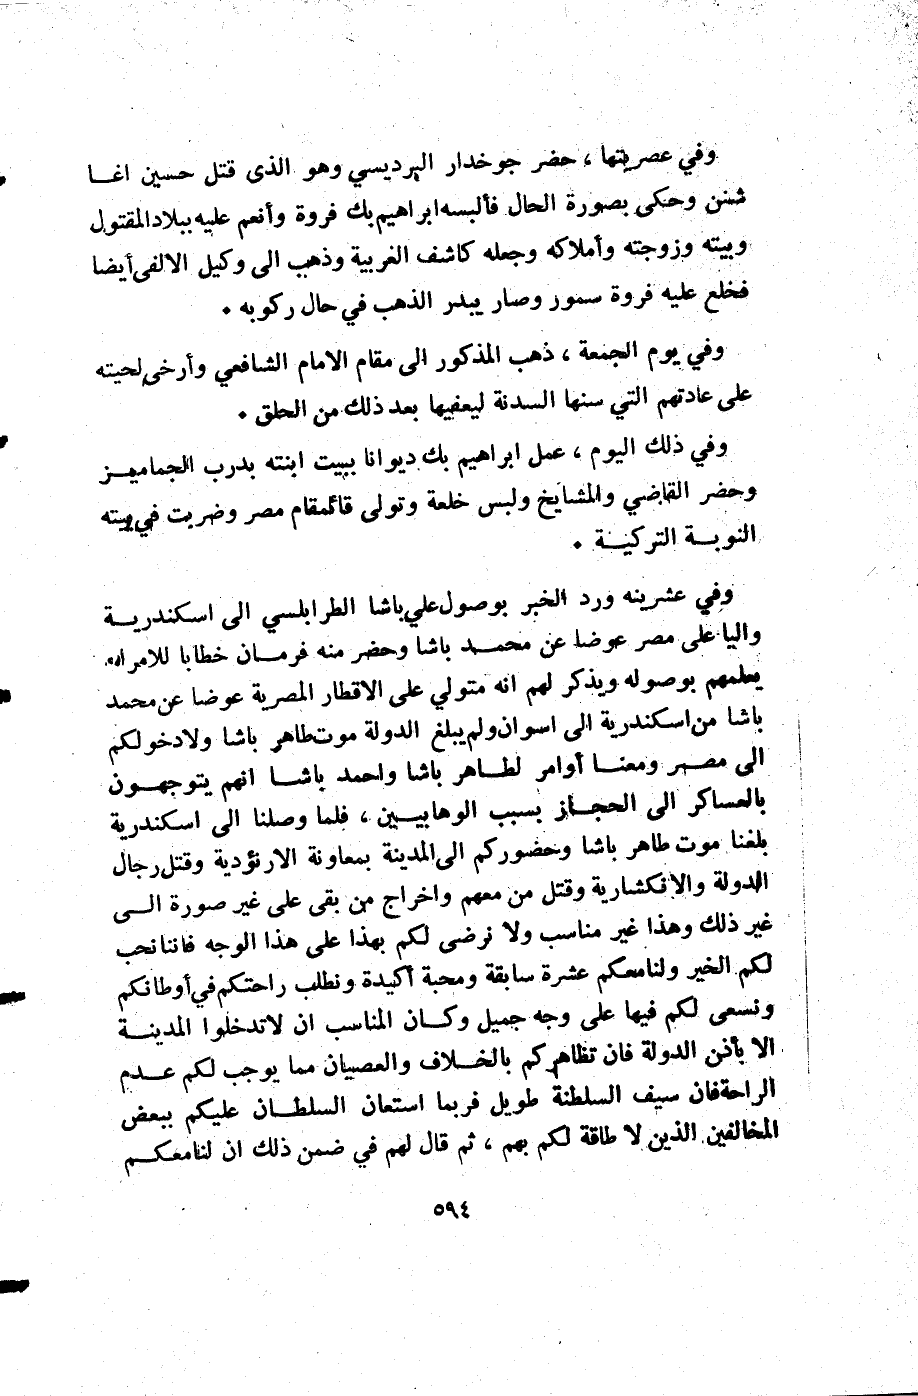 وفي عصريتها ، حضر جوخدار البرديسي وهو الذى قتل حسين اغــا
شنن وحكى بصورة الحال فألبسه ابراهيم بك فروة وأنعم عليه ببلاد المقتول
وبيته وزوجته وأملاكه وجعله كاشف الغربية وذهب الى وكيل الالفى أيضا
فخلع عليه فروة سمور وصار يبدر الذهب في حال ركوبه •
وفي يوم الجمعة ، ذهب المذكور الى مقام الامام الشافعي وأرخى لحيته
على عادتهم التي سنها السدنة ليعفيها بعد ذلك من الحلق •
وفي ذلك اليوم ، عمل ابراهيم بك ديوانا ببيت ابنته بدرب الجماميــز
وحضر القاضي والمشايخ ولبس خلعة وتولى قائمقام مصر وضربت في بيته
النوبــة التركيــة •
وفي عشرينه ورد الخبر بوصول علي باشا الطرابلسي الى اسكندريــة
واليا على مصر عوضا عن محمــد باشا وحضر منه فرمــان خطابا للامراء
يعلمهم بوصوله ويذكر لهم انه متولي على الاقطار المصرية عوضا عن محمد
باشا من اسكندرية الى اسوان ولم يبلغ الدولة موت طاهر باشا ولا دخولكم
الى مصــر ومعنــا أوامر لطــاهر باشا واحمد باشــا انهم يتوجهــون
بالعساكر الى الحجــاز بسبب الوهابيــين ، فلما وصلنا الى اسكندرية
بلغنا موت طاهر باشا وحضوركم الى المدينة بمعاونة الارنؤدية وقتل رجال
الدولة والانكشارية وقتل من معهم واخراج من بقى على غير صورة الــى
غير ذلك وهذا غير مناسب ولا نرضى لكم بهذا على هذا الوجه فاننا نحب
لكم الخير ولنا معكم عشرة سابقة ومحبة أكيدة ونطلب راحتكم في أوطانكم
ونسعى لكم فيها على وجه جميل وكــان المناسب ان لا تدخلوا المدينــة
الا بأذن الدولة فان تظاهركم بالخــلاف والعصيان مما يوجب لكم عــدم
الراحة فان سيف السلطنة طويل فربما استعان السلطــان عليكم ببعض
المخالفين الذين لا طاقة لكم بهم ، ثم قال لهم في ضمن ذلك ان لنا معكــم
٥٩٤